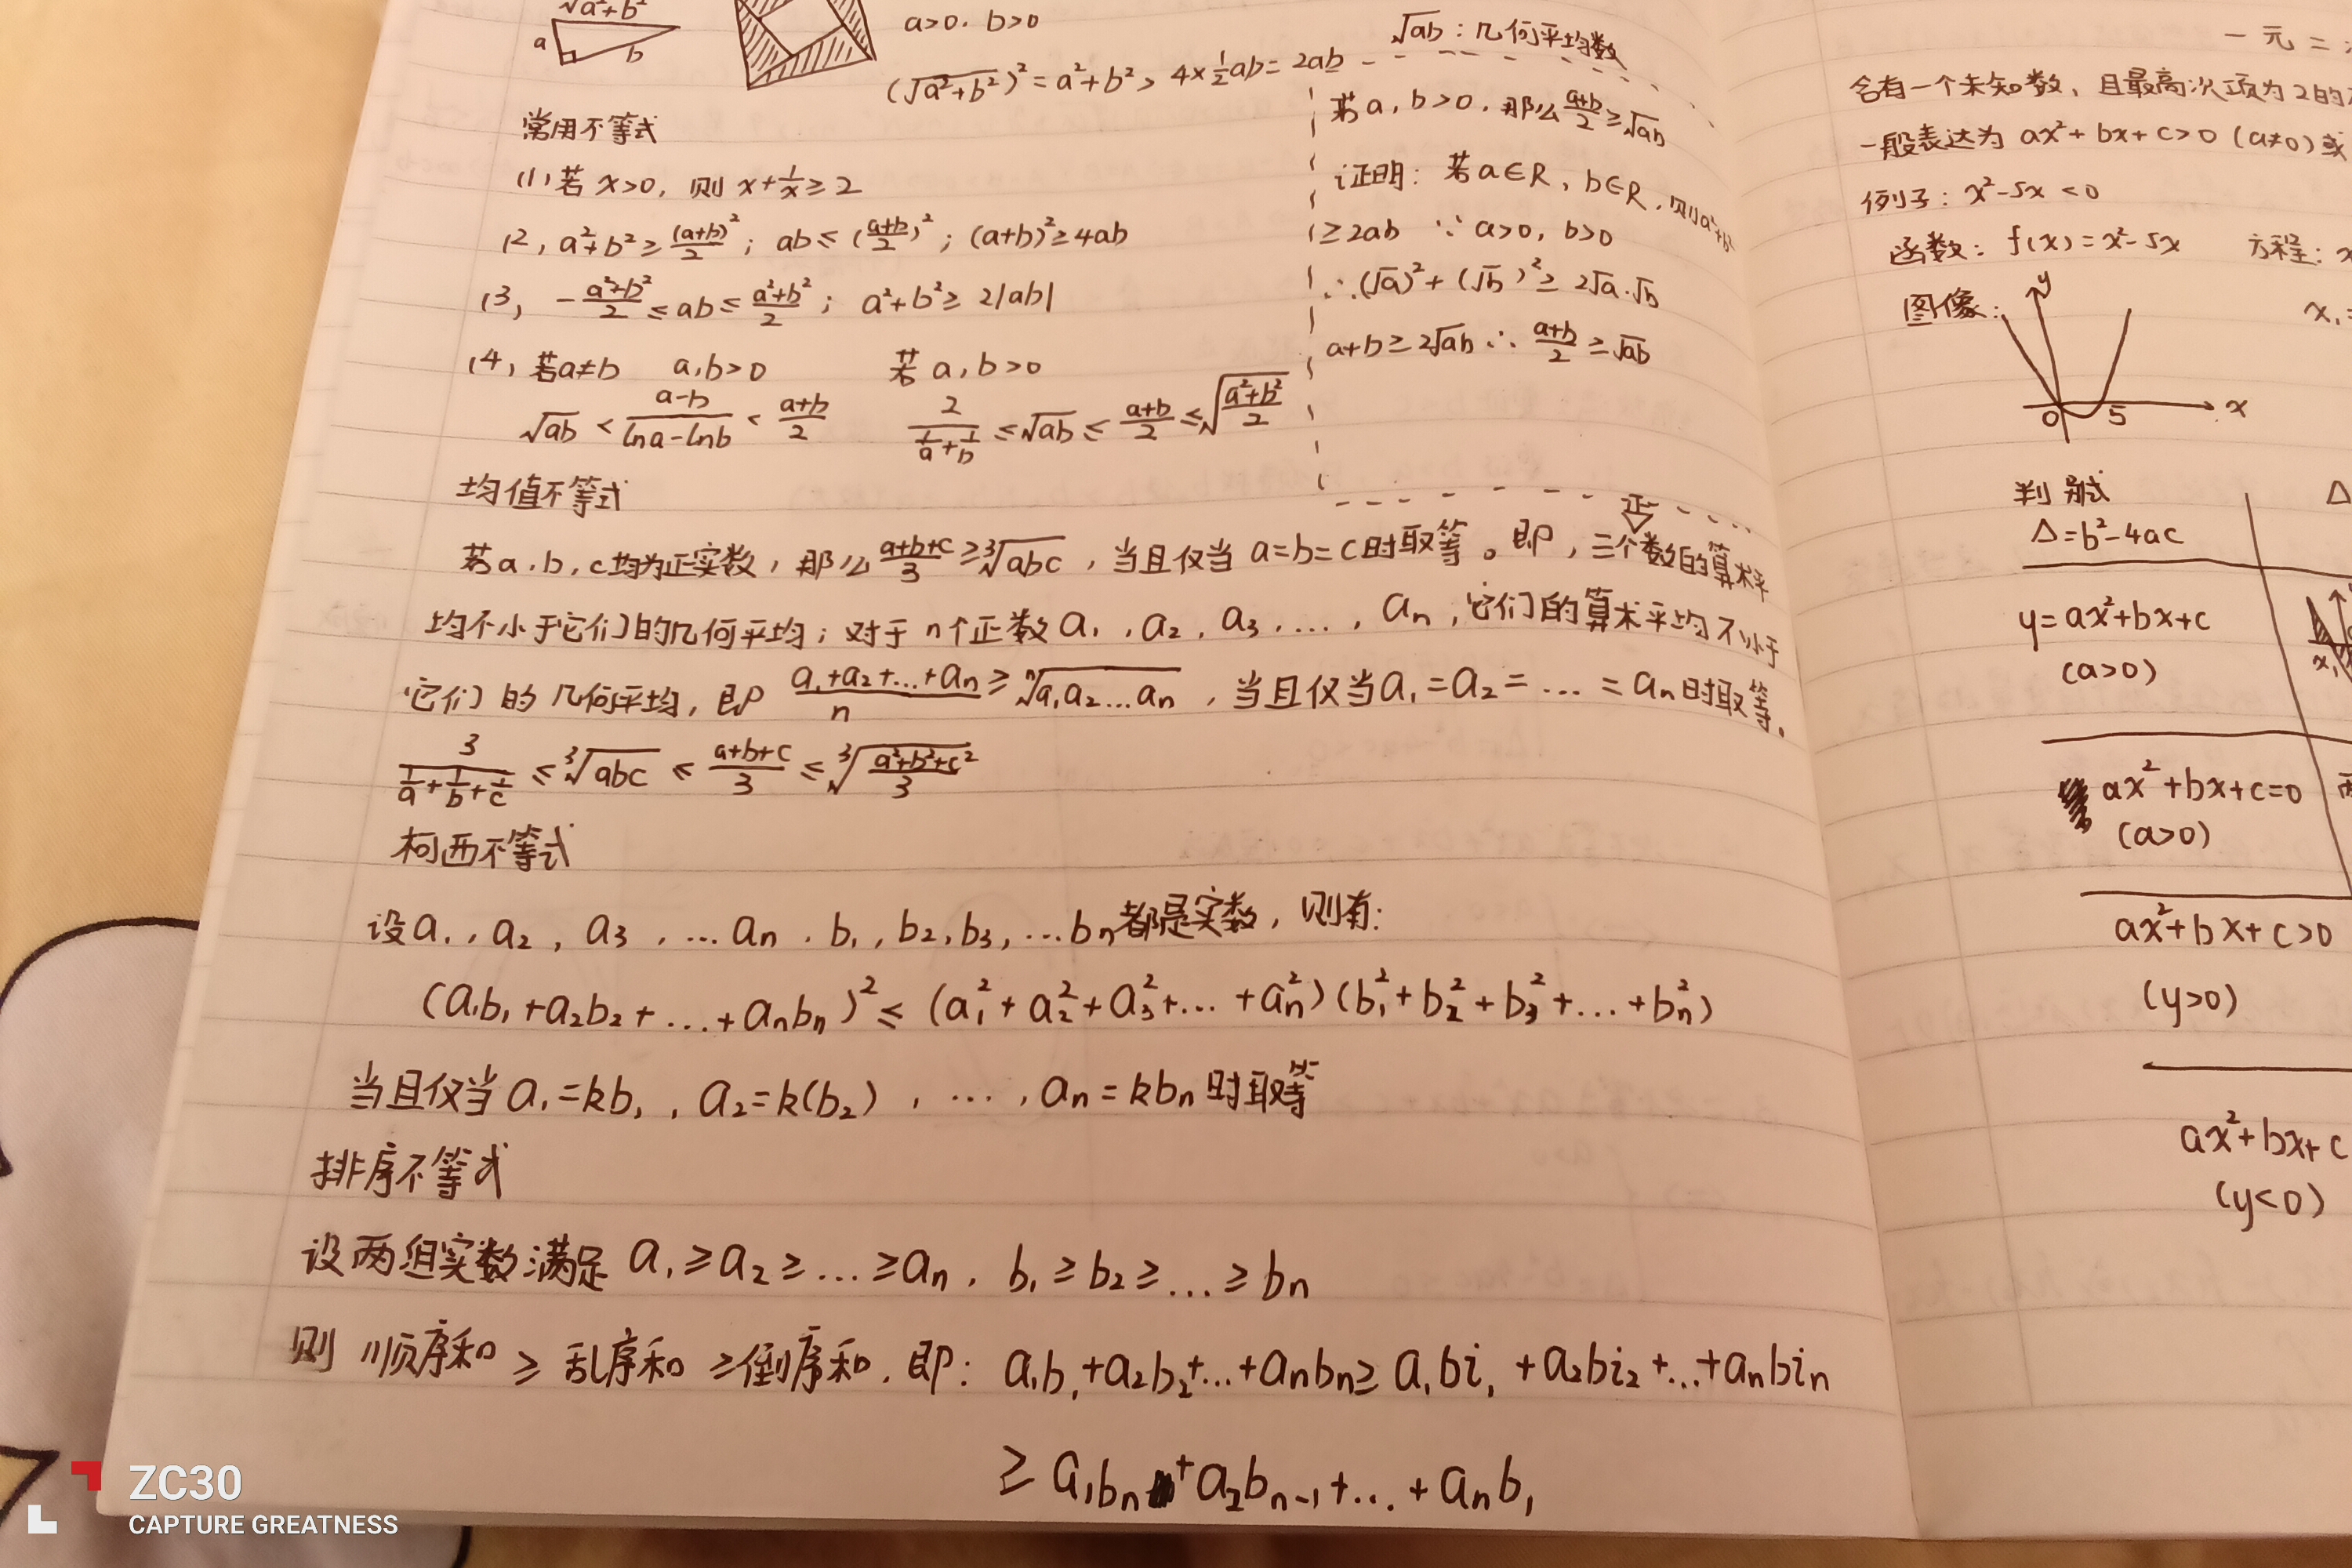 √a²+b²
a
b
a>0. b>0
(√a²+b²)² = a²+b² > 4×½ab = 2ab
常用不等式
(1) 若 x>0, 则 x+1/x ≥ 2
(2) a²+b² ≥ (a+b)²/2; ab ≤ (a+b/2)²; (a+b)² ≥ 4ab
(3) -a²+b²/2 ≤ ab ≤ a²+b²/2; a²+b² ≥ 2|ab|
(4) 若a≠b a,b>0 若 a,b>0
√ab < a-b/lna-lnb < a+b/2 2/(1/a+1/b) ≤ √ab ≤ a+b/2 ≤ √(a²+b²/2)
√ab : 几何平均数
若 a, b>0, 那么 a+b/2 ≥ √ab
证明: 若 a∈R, b∈R, 则a²+b²
≥2ab ∵ a>0, b>0
∴(√a)²+(√b)² ≥ 2√a·√b
a+b ≥ 2√ab ∴ a+b/2 ≥ √ab
均值不等式
若a,b,c均为正实数, 那么 a+b+c/3 ≥ ³√abc, 当且仅当 a=b=c时取等。即, 三个数的算术平
均不小于它们的几何平均; 对于 n个正数 a₁, a₂, a₃, ..., aₙ, 它们的算术平均不小于
它们的几何平均, 即 a₁+a₂+...+aₙ/n ≥ ⁿ√a₁a₂...aₙ, 当且仅当a₁=a₂=...=aₙ时取等.
3/(1/a+1/b+1/c) ≤ ³√abc ≤ a+b+c/3 ≤ ³√(a²+b²+c²/3)
柯西不等式
设a₁, a₂, a₃, ...aₙ. b₁, b₂, b₃, ...bₙ都是实数, 则有:
(a₁b₁+a₂b₂+...+aₙbₙ)² ≤ (a₁²+a₂²+a₃²+...+aₙ²)(b₁²+b₂²+b₃²+...+bₙ²)
当且仅当 a₁=kb₁, a₂=k(b₂), ..., aₙ=kbₙ 时取等
排序不等式
设两组实数满足 a₁≥a₂≥...≥aₙ. b₁≥b₂≥...≥bₙ
则 顺序和 ≥ 乱序和 ≥倒序和. 即: a₁b₁+a₂b₂+...+aₙbₙ ≥ a₁bi₁+a₂bi₂+...+aₙbiₙ
≥ a₁bₙ+a₂bₙ₋₁+...+aₙb₁
一元二
含有一个未知数, 且最高次项为2的
一般表达为 ax²+bx+c>0 (a≠0) 或
例子: x²-5x<0
函数: f(x)=x²-5x 方程: x
图像: x₁=
y
0 5 x
判别式 Δ
Δ=b²-4ac
y=ax²+bx+c
(a>0)
x₁
ax²+bx+c=0
(a>0)
ax²+bx+c>0
(y>0)
ax²+bx+c
(y<0)
ZC30
CAPTURE GREATNESS